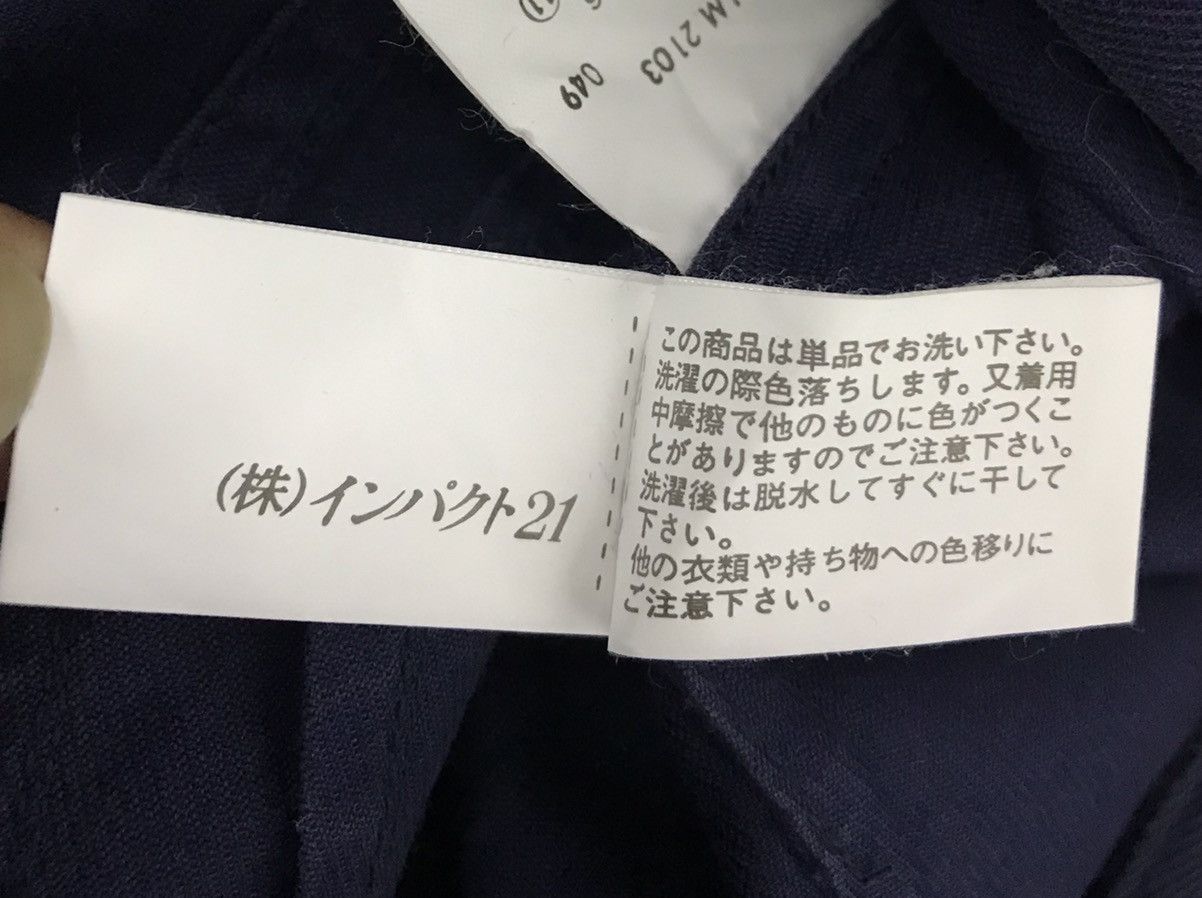 M 2103
049
(株)インパクト21
この商品は単品でお洗い下さい。
洗濯の際色落ちします。又着用
中摩擦で他のものに色がつくこ
とがありますのでご注意下さい。
洗濯後は脱水してすぐに干して
下さい。
他の衣類や持ち物への色移りに
ご注意下さい。